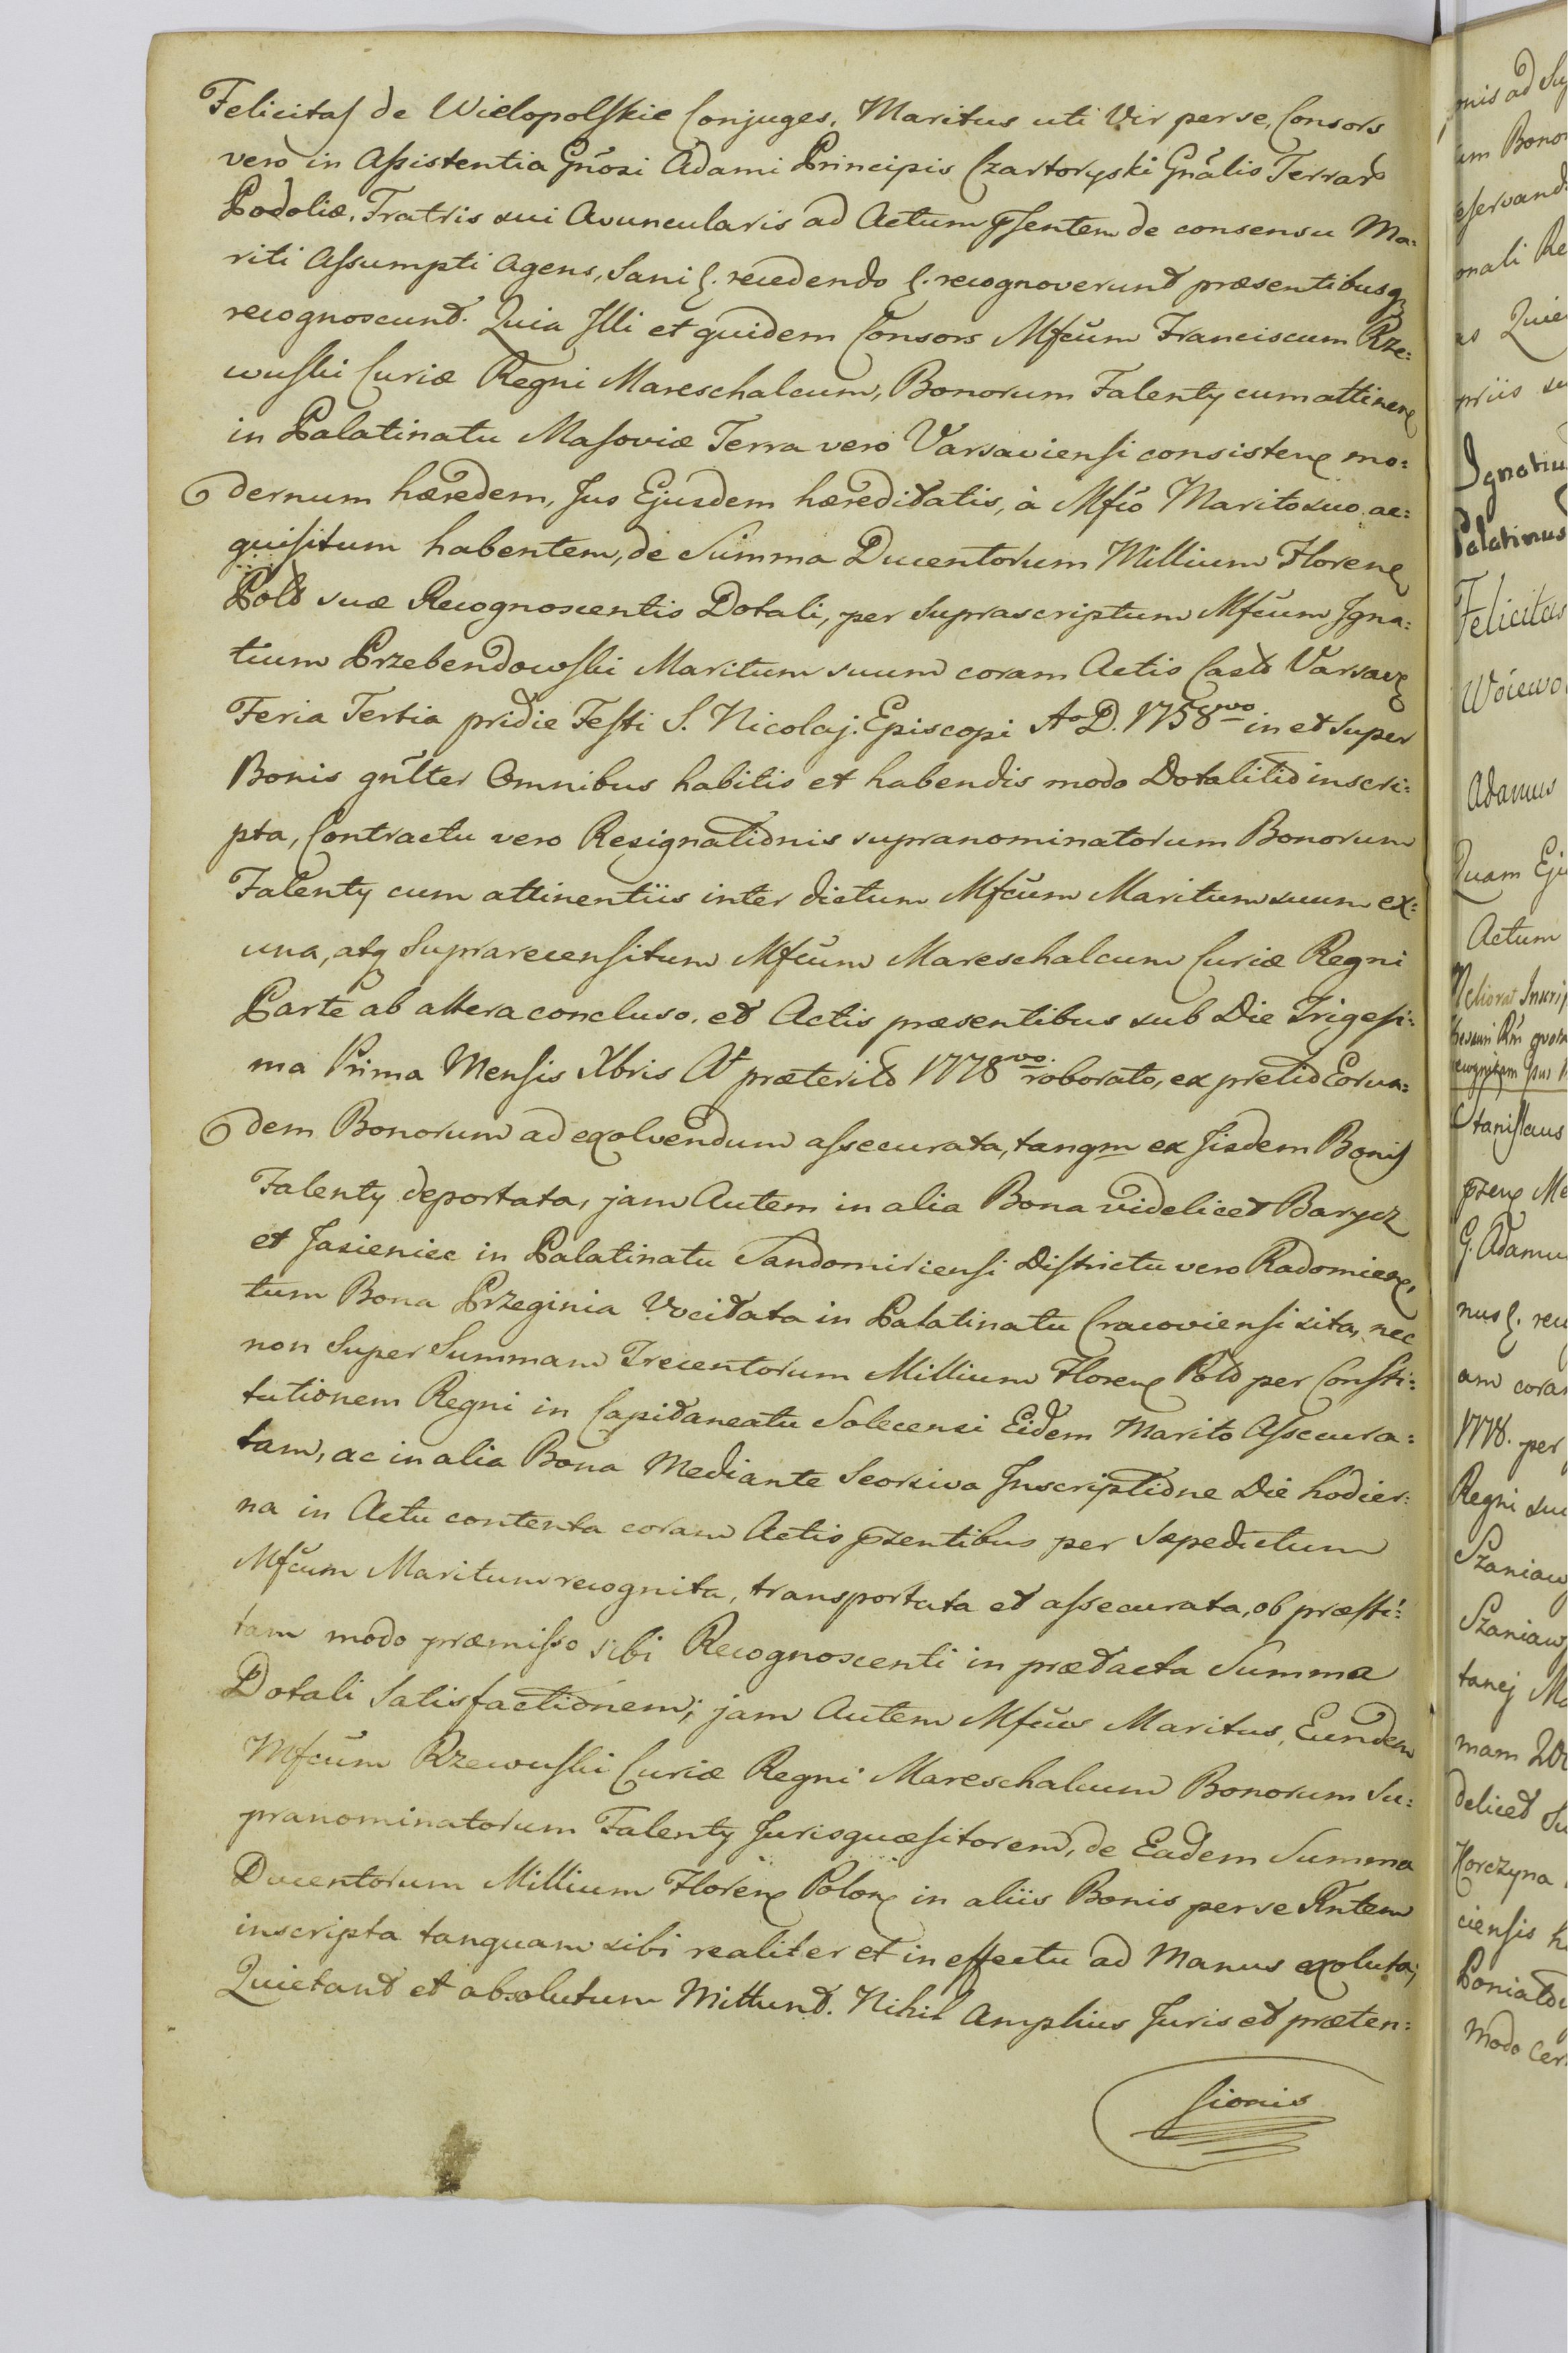 Felicitas de Wielopolskie Conjuges, Maritus uti Vir per se, Consors
vero in Assistentia Gnosi Adami Principis Czartoryski Gnalis Terrar
Podoliæ, Fratris sui Avuncularis ad Actum psentem de consensu Ma:
riti Assumpti Agens, Sani &. recedendo &. recognoverunt præsentibusq
recognoscunt. Quia Illi et quidem Consors Mfcum Franciscum Rze:
wuski Curiæ Regni Mareschalcum, Bonorum Falenty cum attinen
in Palatinatu Masoviæ Terra vero Varsaviensi consisten mo:
dernum hæredem, Jus Ejusdem hæreditatis, à Mfco Marito suo ac:
quisitum habentem, de Summa Ducentorum Millium Floren
Pold suæ Recognoscentis Dotali, per suprascriptum Mfcum Igna:
tium Przebendowski Maritum suum coram Actis Castr Varsav
Feria Tertia pridie Festi S. Nicolaj. Episcopi Ao D. 1758vo in et super
Bonis gnlter Omnibus habitis et habendis modo Dotalitio inscri:
pta, Contractu vero Resignationis supranominatorum Bonorum
Falenty cum attinentiis inter dictum Mfcum Maritum suum ex:
una, atq Suprarecensitum Mfcum Mareschalcum Curiæ Regni
Parte ab altera concluso, et Actis præsentibus sub Die Trigesi:
ma Prima Mensis Xbris A præterito 1778vo roborato, ex pretio Eorun:
dem Bonorum ad exolvendum assecurata, tanqm ex Iisdem Bonis
Falenty deportata, jam Autem in alia Bona videlicet Barycz
et Jasieniec in Palatinatu Sandomiriensi Districtu vero Radomien,
tum Bona Przeginia Vocitata in Palatinatu Cracoviensi sita, nec
non super Summam Trecentorum Millium Floren Pold per Consti:
tutionem Regni in Capitaneatu Solecensi Eidem Marito Assecura:
tam, ac in alia Bona Mediante Seorsiva Inscriptione Die hodier:
na in Actu contenta coram Actis pzentibus per sæpedictum
Mfcum Maritum recognita, transportata et assecurata, ob præsti:
tam modo præmisso sibi Recognoscenti in prætacta Summa
Dotali Satisfactionem; jam Autem Mfcus Maritus, Eundem
Mfcum Rzewuski Curiæ Regni Mareschalcum Bonorum Su:
pranominatorum Falenty Jurisquæsitorem, de Eadem Summa
Ducentorum Millium Floren Polon in aliis Bonis per se Rntem
inscripta tanquam sibi realiter et in effectu ad Manus exoluta;
Quietant et absolutum Mittunt. Nihil Amplius Juris et præten:
sionis